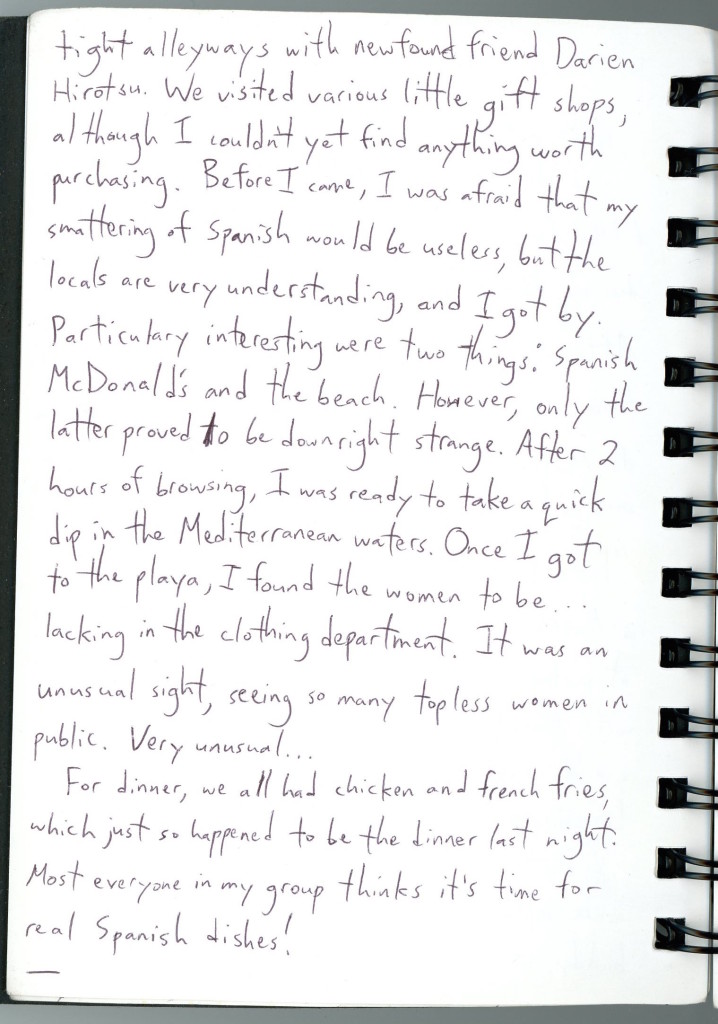 tight alleyways with newfound friend Darien
Hirotsu. We visited various little gift shops,
although I couldn't yet find anything worth
purchasing. Before I came, I was afraid that my
smattering of Spanish would be useless, but the
locals are very understanding, and I got by.
Particulary interesting were two things: Spanish
McDonald's and the beach. However, only the
latter proved to be downright strange. After 2
hours of browsing, I was ready to take a quick
dip in the Mediterranean waters. Once I got
to the playa, I found the women to be...
lacking in the clothing department. It was an
unusual sight, seeing so many topless women in
public. Very unusual...
For dinner, we all had chicken and french fries,
which just so happened to be the dinner last night.
Most everyone in my group thinks it's time for
real Spanish dishes!
—